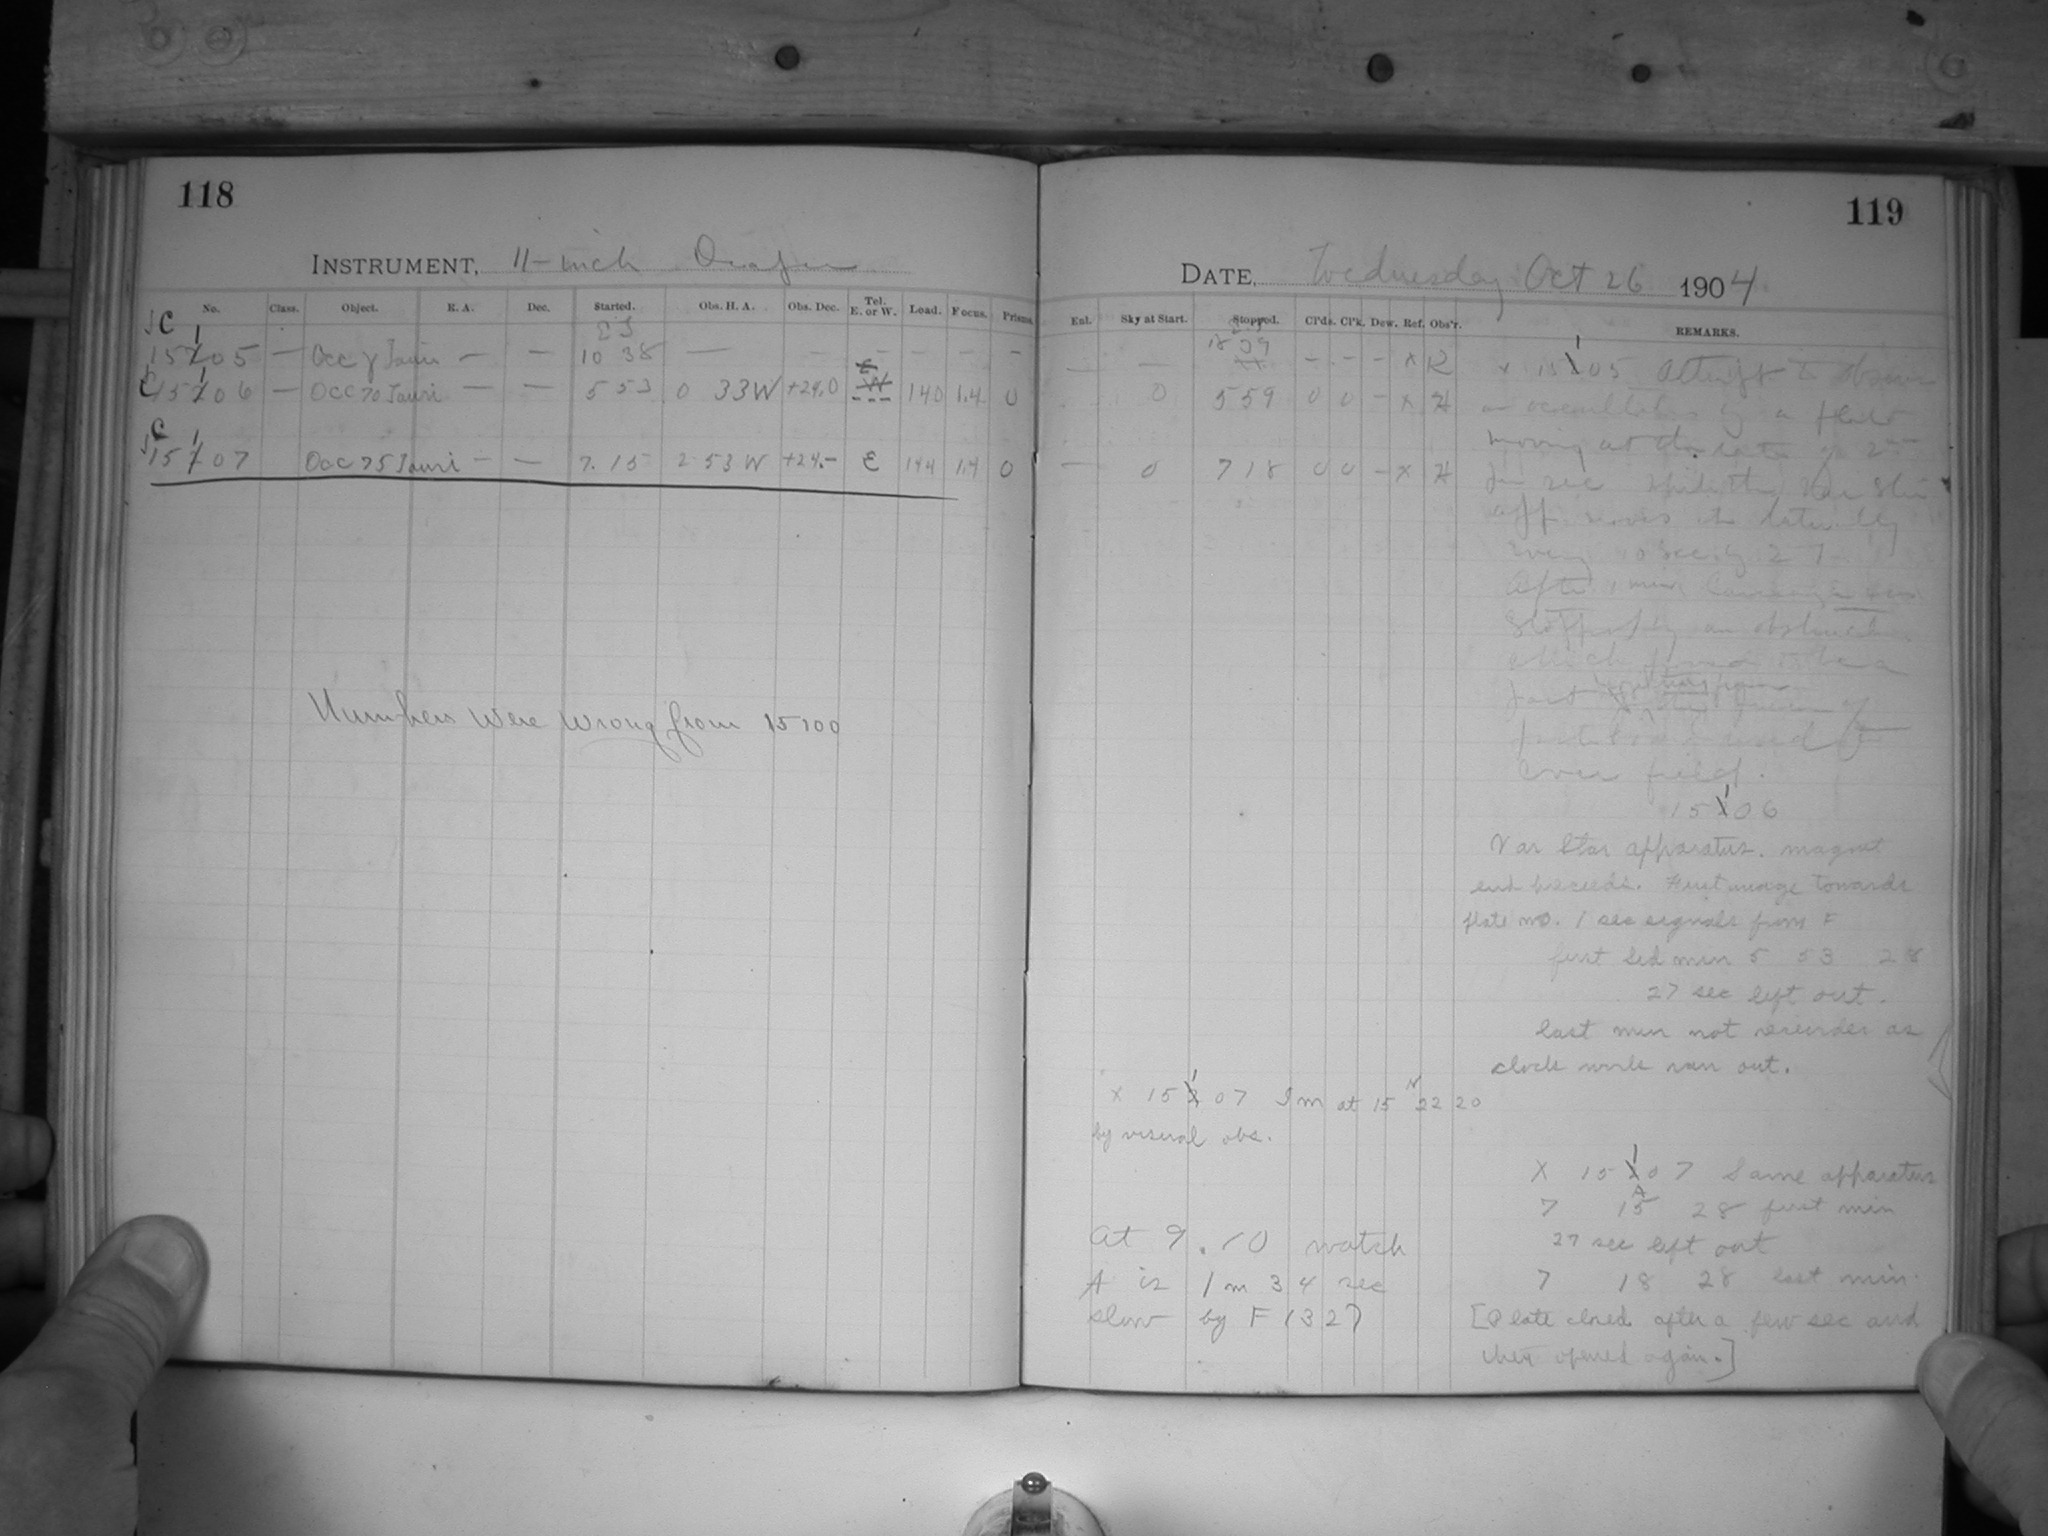 118
INSTRUMENT, 11-inch Draper
No. Class. Object. R. A. Dec. Started. Obs. H. A. Obs. Dec. Tel. E. or W. Load. Focus. Prisms
C 15105 — Occ γ Tauri — — 10 38 —
C 15106 — Occ 70 Tauri — — 5 53 0 33 W +24.0 E 140 1.4 0
C 15107 Occ 75 Tauri — — 7.15 2 53 W +24.— E 144 1.4 0
Numbers were wrong from 15100
119
DATE, Wednesday Oct 26 1904
Enl. Sky at Start. Stopped. Cl'ds. Cl'k. Dew. Ref. Obs'r. REMARKS.
— — 18 39 - - - x R
0 5 59 0 0 - x H
— 0 7 18 0 0 - x H
x 15105 Attempt to observe
an occultation by a plate
moving at the rate of 2
per sec while the Var Star
app. moves it laterally
every 10 sec by 2
After 1 min
stopped by an obstruction
which found to be a
over field.
15106
Var Star apparatus. magnet
end preceeds. First image towards
plate no. 1 sec signals from F
first sid min 5 53 28
27 sec left out.
last min not recorded as
clock work ran out.
x 15107 Im at 15 22 20
by visual obs.
X 15107 Same apparatus
7 15 28 first min
27 sec left out
7 18 28 last min.
[Plate closed after a few sec and
then opened again.]
At 9.10 watch
A is 1 m 34 sec
slow by F (327)